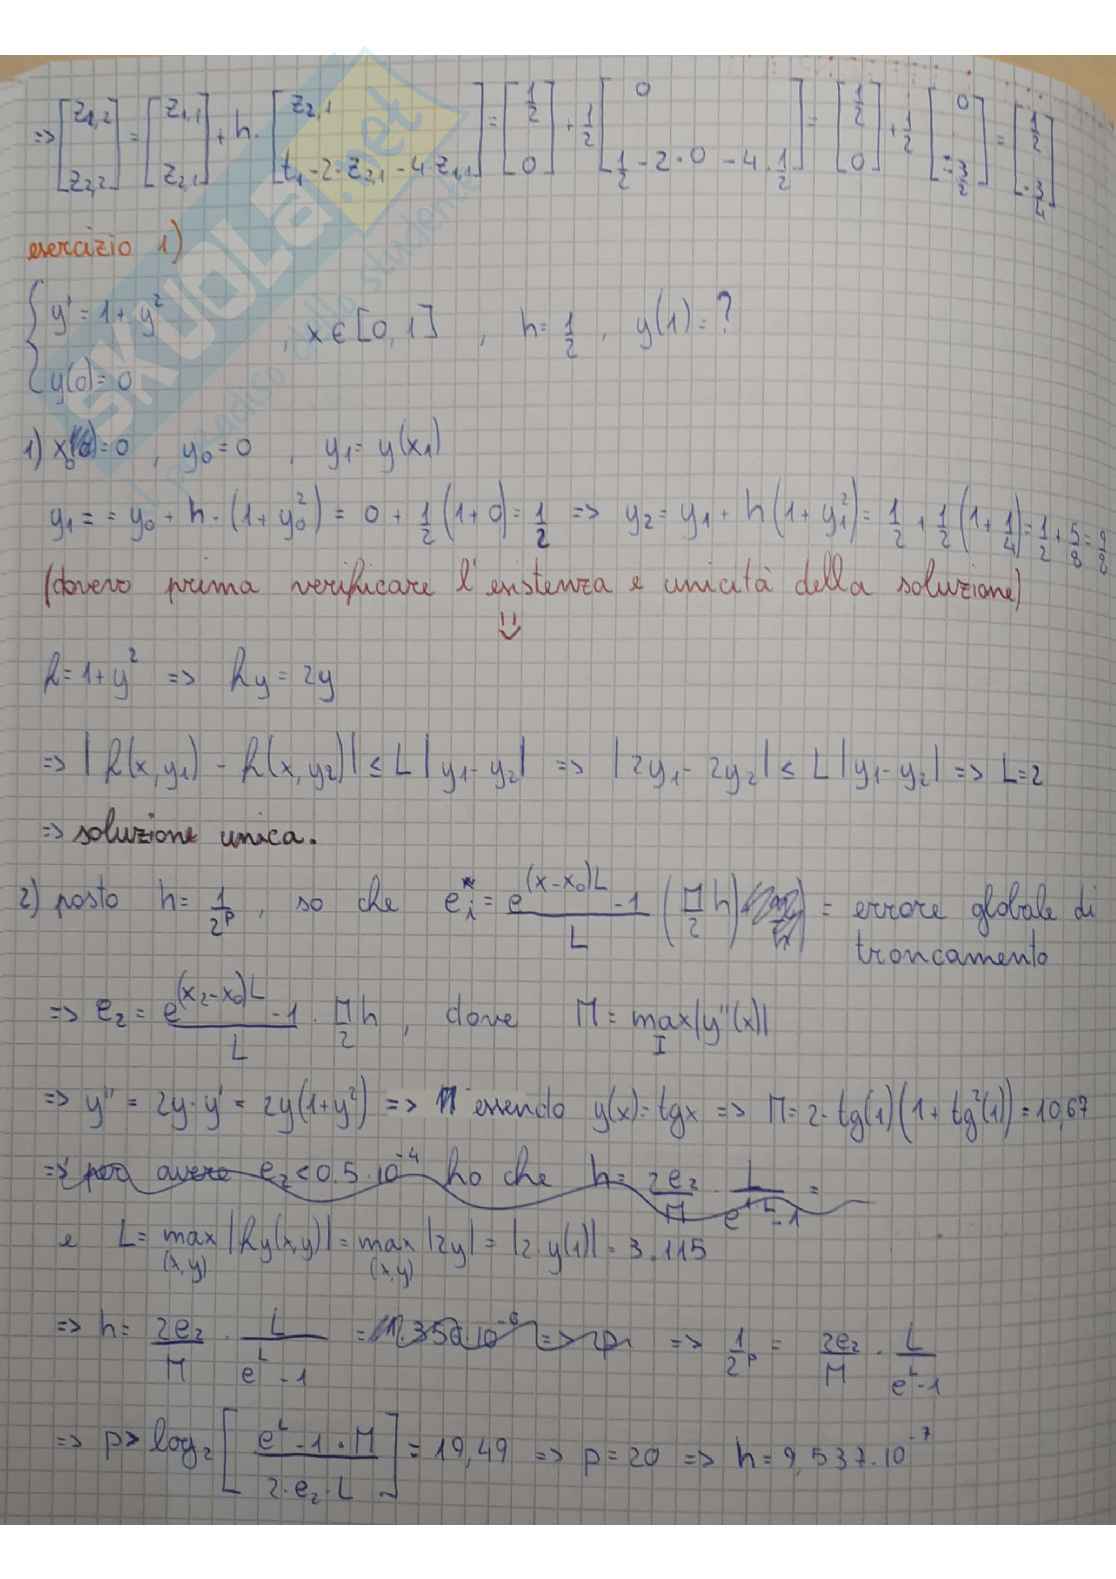 => [z1,2 z2,2] = [z1,1 z2,1] + h · [z2,1 t1 - 2·z2,1 - 4·z1,1] = [1/2 0] + 1/2 [0 1/2 - 2·0 - 4·1/2] = [1/2 0] + 1/2 [0 -3/2] = [1/2 -3/4]
esercizio 1)
{ y' = 1 + y²
, x ∈ [0, 1] , h = 1/2 , y(1) = ?
y(0) = 0
1) x0 = 0 , y0 = 0 , y1 = y(x1)
y1 = = y0 + h · (1 + y0²) = 0 + 1/2 (1+0) = 1/2 => y2 = y1 + h(1 + y1²) = 1/2 + 1/2 (1 + 1/4) = 1/2 + 5/8 = 9/8
(dovevo prima verificare l'esistenza e unicità della soluzione)
f = 1 + y² => fy = 2y
=> |f(x, y1) - f(x, y2)| ≤ L |y1 - y2| => |2y1 - 2y2| ≤ L |y1 - y2| => L = 2
=> soluzione unica.
2) posto h = 1/2^p , so che ei* = (e^((x-x0)L) - 1)/L (M/2 h) = errore globale di
troncamento
=> e2 = (e^((x2-x0)L) - 1)/L · M/2 h , dove M = max_I |y''(x)|
=> y'' = 2y·y' = 2y(1+y²) => essendo y(x) = tgx => M = 2·tg(1)(1 + tg²(1)) = 10,67
=> per avere e2 < 0.5·10^-4 ho che h = 2e2/M · L/(e^L - 1) =
e L = max_(x,y) |fy(x,y)| = max_(x,y) |2y| = |2 y(1)| = 3.115
=> h = 2e2/M · L/(e^L - 1) = => 1/2^p = 2e2/M · L/(e^L - 1)
=> p > log2 [(e^L - 1 · M)/(2·e2·L)] = 19,49 => p = 20 => h = 9,537·10^-7
SKUOLA.net